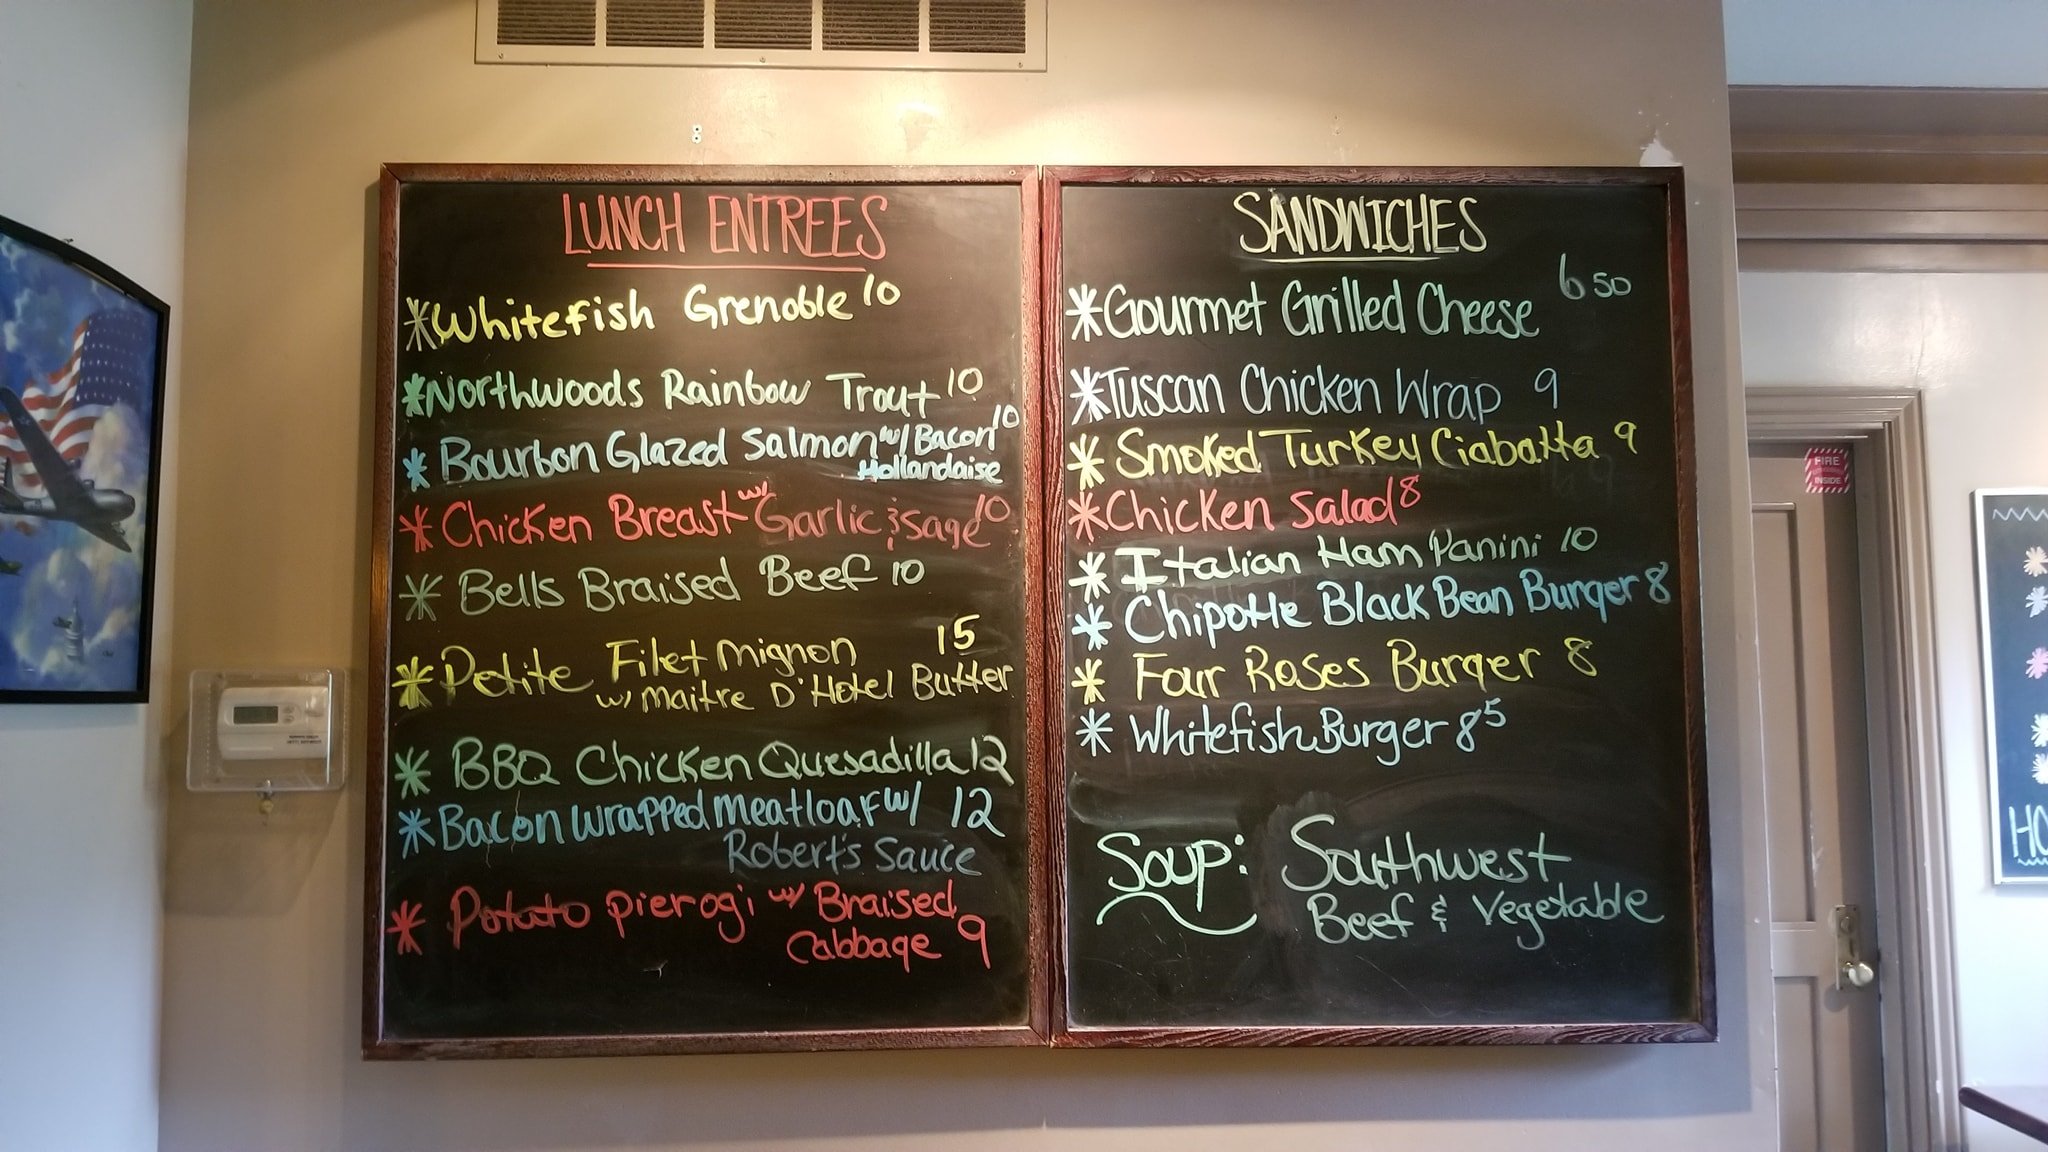 LUNCH ENTREES
Whitefish Grenoble 10
Northwoods Rainbow Trout 10
Bourbon Glazed Salmon w/ Bacon 10
Hollandaise
Chicken Breast w/ Garlic & Sage 10
Bells Braised Beef 10
Petite Filet Mignon 15
w/ Maitre D'Hotel Butter
BBQ Chicken Quesadilla 12
Bacon Wrapped Meatloaf w/ 12
Robert's Sauce
Potato Pierogi w/ Braised
Cabbage 9
SANDWICHES
Gourmet Grilled Cheese 6 50
Tuscan Chicken Wrap 9
Smoked Turkey Ciabatta 9
Chicken Salad 8
Italian Ham Panini 10
Chipotle Black Bean Burger 8
Four Roses Burger 8
Whitefish Burger 8 5
Soup: Southwest
Beef & Vegetable
FIRE
INSIDE
HO